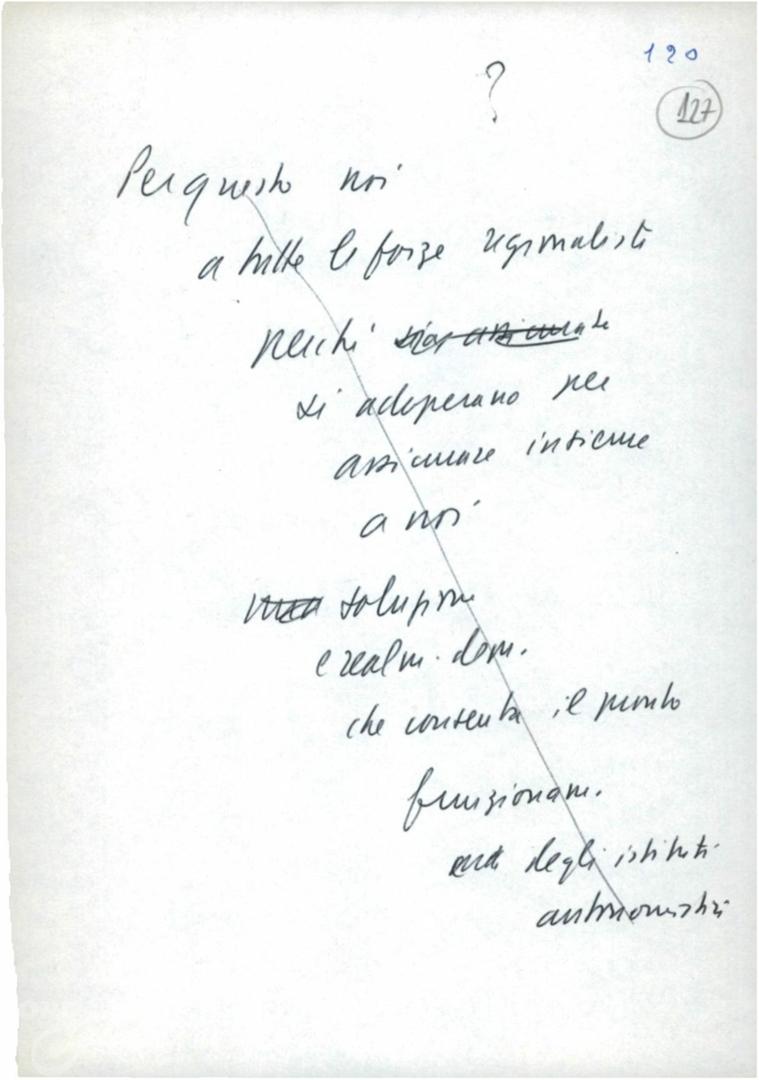 120
?
127
Per questo noi
a tutte le forze regionaliste
perché
si adoperano per
assicurare insieme
a noi
una soluzione
e realm. dem.
che consenta il pronto
funzionam.
degli istituti
autonomistici